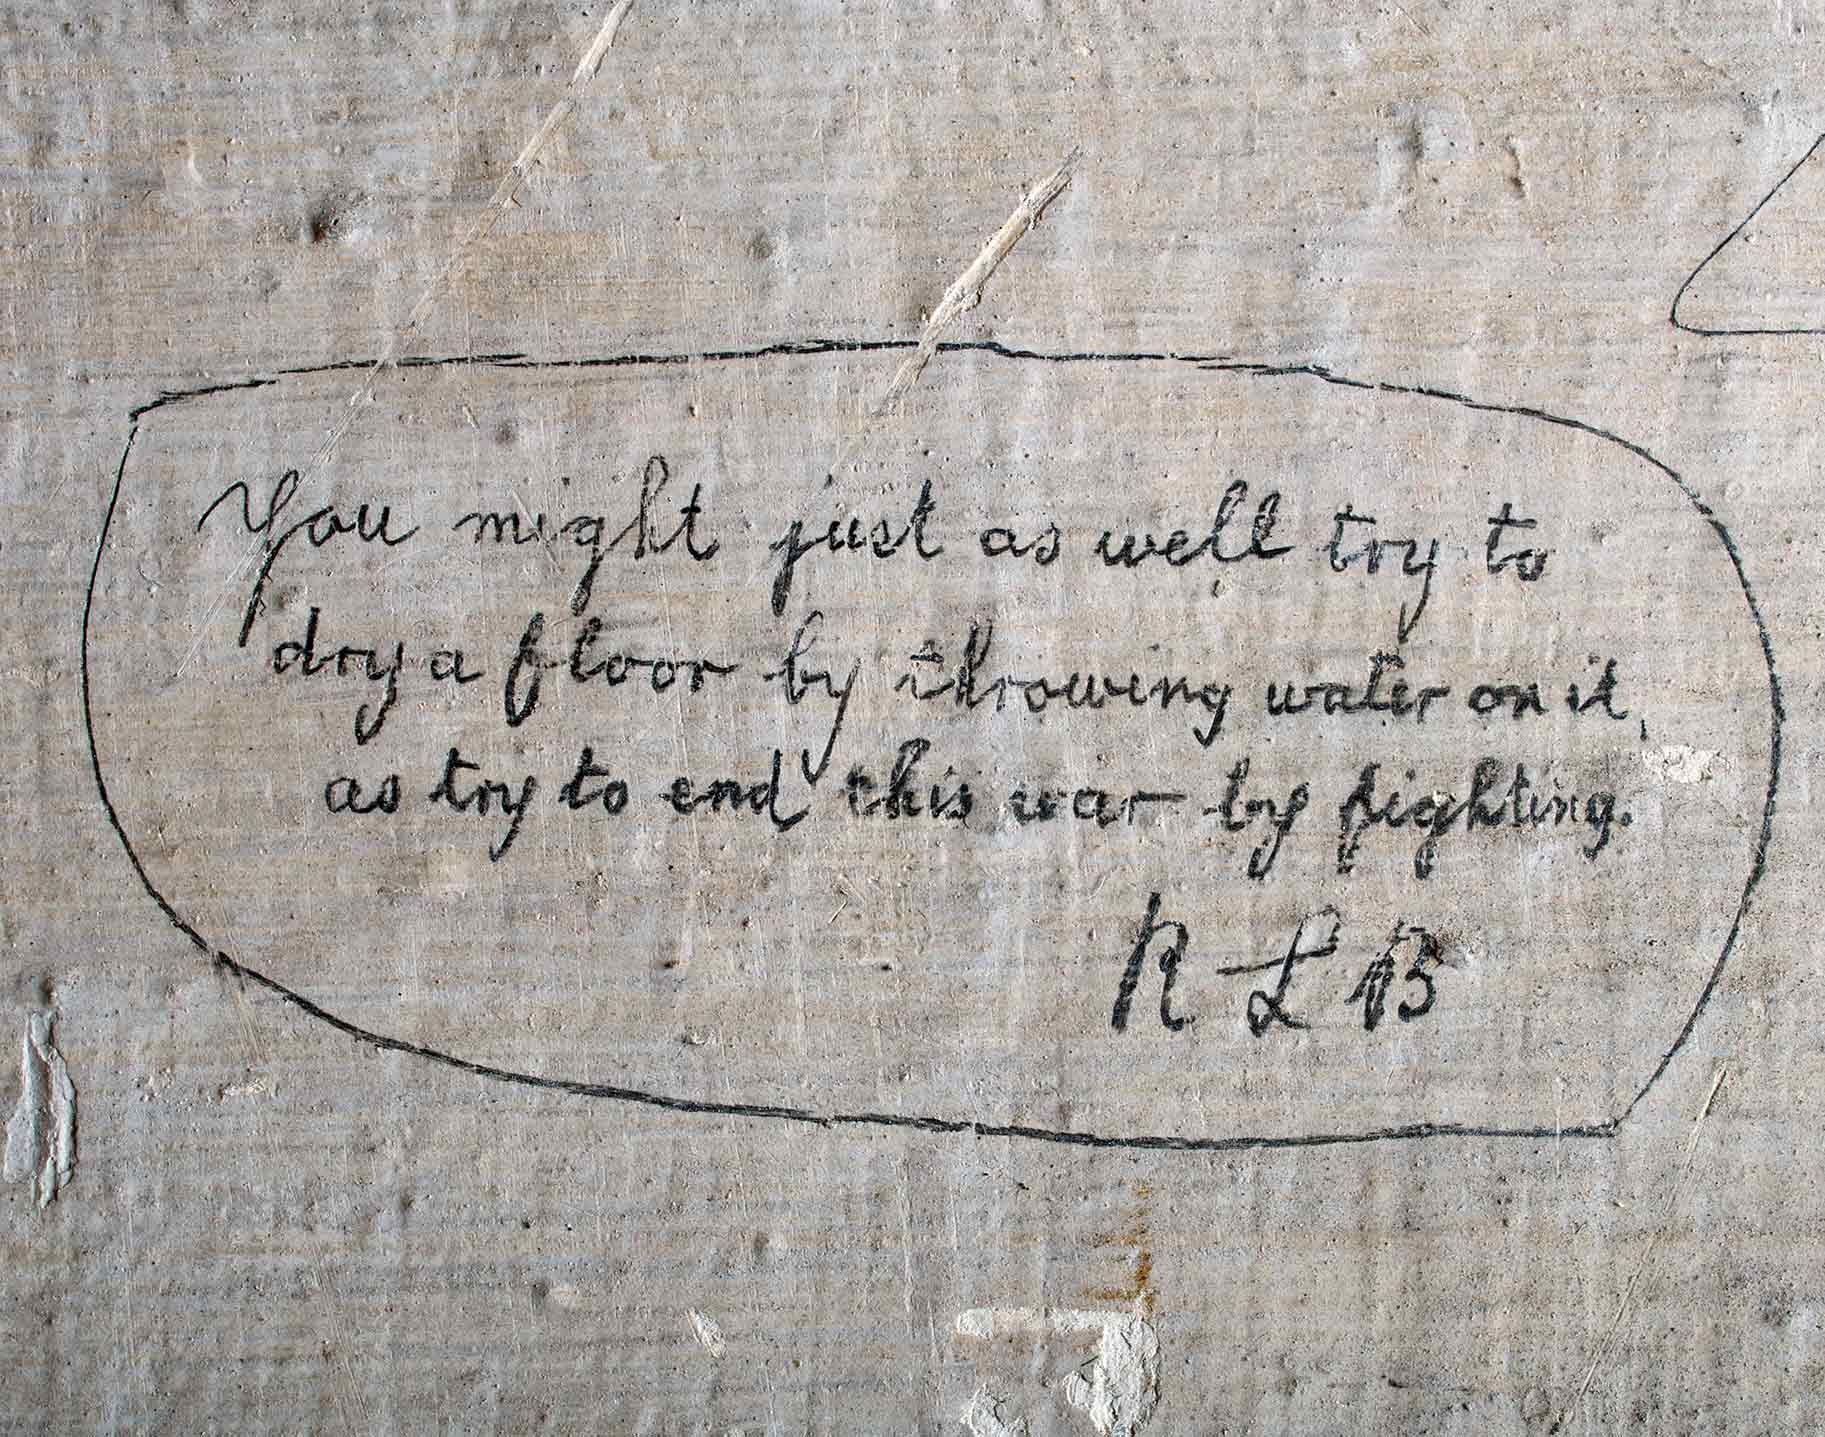 You might just as well try to
dry a floor by throwing water on it,
as try to end this war by fighting.
R L B